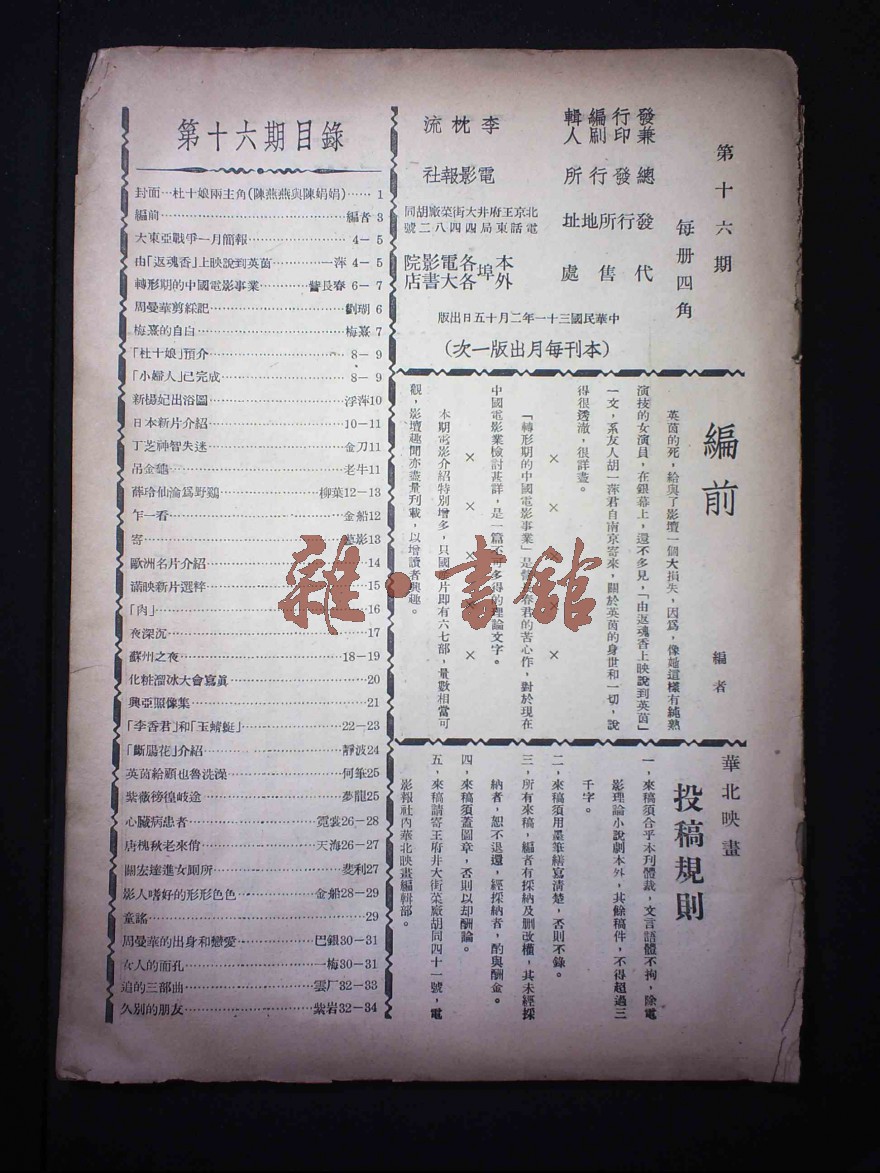 第十六期
每册四角
發行兼編輯印刷人　李枕流
總發行所　電影報社
發行所地址　北京王府井大街菜廠胡同
電話東局四四八二號
代售處　本外埠各電影院各大書店
中華民國三十一年二月十五日出版
(本刊每月出版一次)
編前
編者
英茵的死，給與了影壇一個大損失，因爲，像她這樣有純熟
演技的女演員，在銀幕上，還不多見，「由返魂香上映說到英茵」
一文，系友人胡一萍君自南京寄來，關於英茵的身世和一切，說
得很透澈，很詳盡。
×　×　×　×　×
「轉形期的中國電影事業」是訾長春君的苦心作，對於現在
中國電影業檢討甚詳，是一篇不可多得的理論文字。
×　×　×　×　×
本期電影介紹特別增多，只國產片即有六七部，量數相當可
觀，影壇趣聞亦盡量刊載，以增讀者興趣。
華北映畫
投稿規則
一，來稿須合乎本刊體裁，文言語體不拘，除電
影理論小說劇本外，其餘稿件，不得超過三
千字。
二，來稿須用墨筆繕寫清楚，否則不錄。
三，所有來稿，編者有採納及删改權，其未經採
納者，恕不退還，經採納者，酌與酬金。
四，來稿須蓋圖章，否則以却酬論。
五，來稿請寄王府井大街菜廠胡同四十一號，電
影報社内華北映畫編輯部。
第十六期目錄
封面…杜十娘兩主角(陳燕燕與陳娟娟)……1
編前……編者 3
大東亞戰爭一月簡報……4－5
由「返魂香」上映說到英茵……一萍 4－5
轉形期的中國電影事業……訾長春 6－7
周曼華剪綵記……劉瑚 6
梅熹的自白……梅熹 7
「杜十娘」預介……8－9
「小婦人」已完成……8－9
新楊妃出浴圖……浮萍10
日本新片介紹……10－11
丁芝神智失迷……金刀11
吊金龜……老牛11
薛珞仙淪爲野鷄……柳葉12－13
乍一看……金船12
寄……藝影13
歐洲名片介紹……14
滿映新片選粹……15
「肉」……16
夜深沉……17
蘇州之夜……18－19
化粧溜冰大會寫眞……20
興亞照像集……21
「李香君」和「玉蜻蜓」……22－23
「斷腸花」介紹……靜波24
英茵給顧也魯洗澡……何筆25
紫薇徬徨岐途……夢龍25
心臟病患者……霓裳26－28
唐槐秋老來俏……天海26－27
關宏達進女厠所……斐利27
影人嗜好的形形色色……金船28－29
童謠……29
周曼華的出身和戀愛……巴銀30－31
女人的面孔……一梅30－31
追的三部曲……雲厂32－33
久別的朋友……紫岩32－34
雜·書館